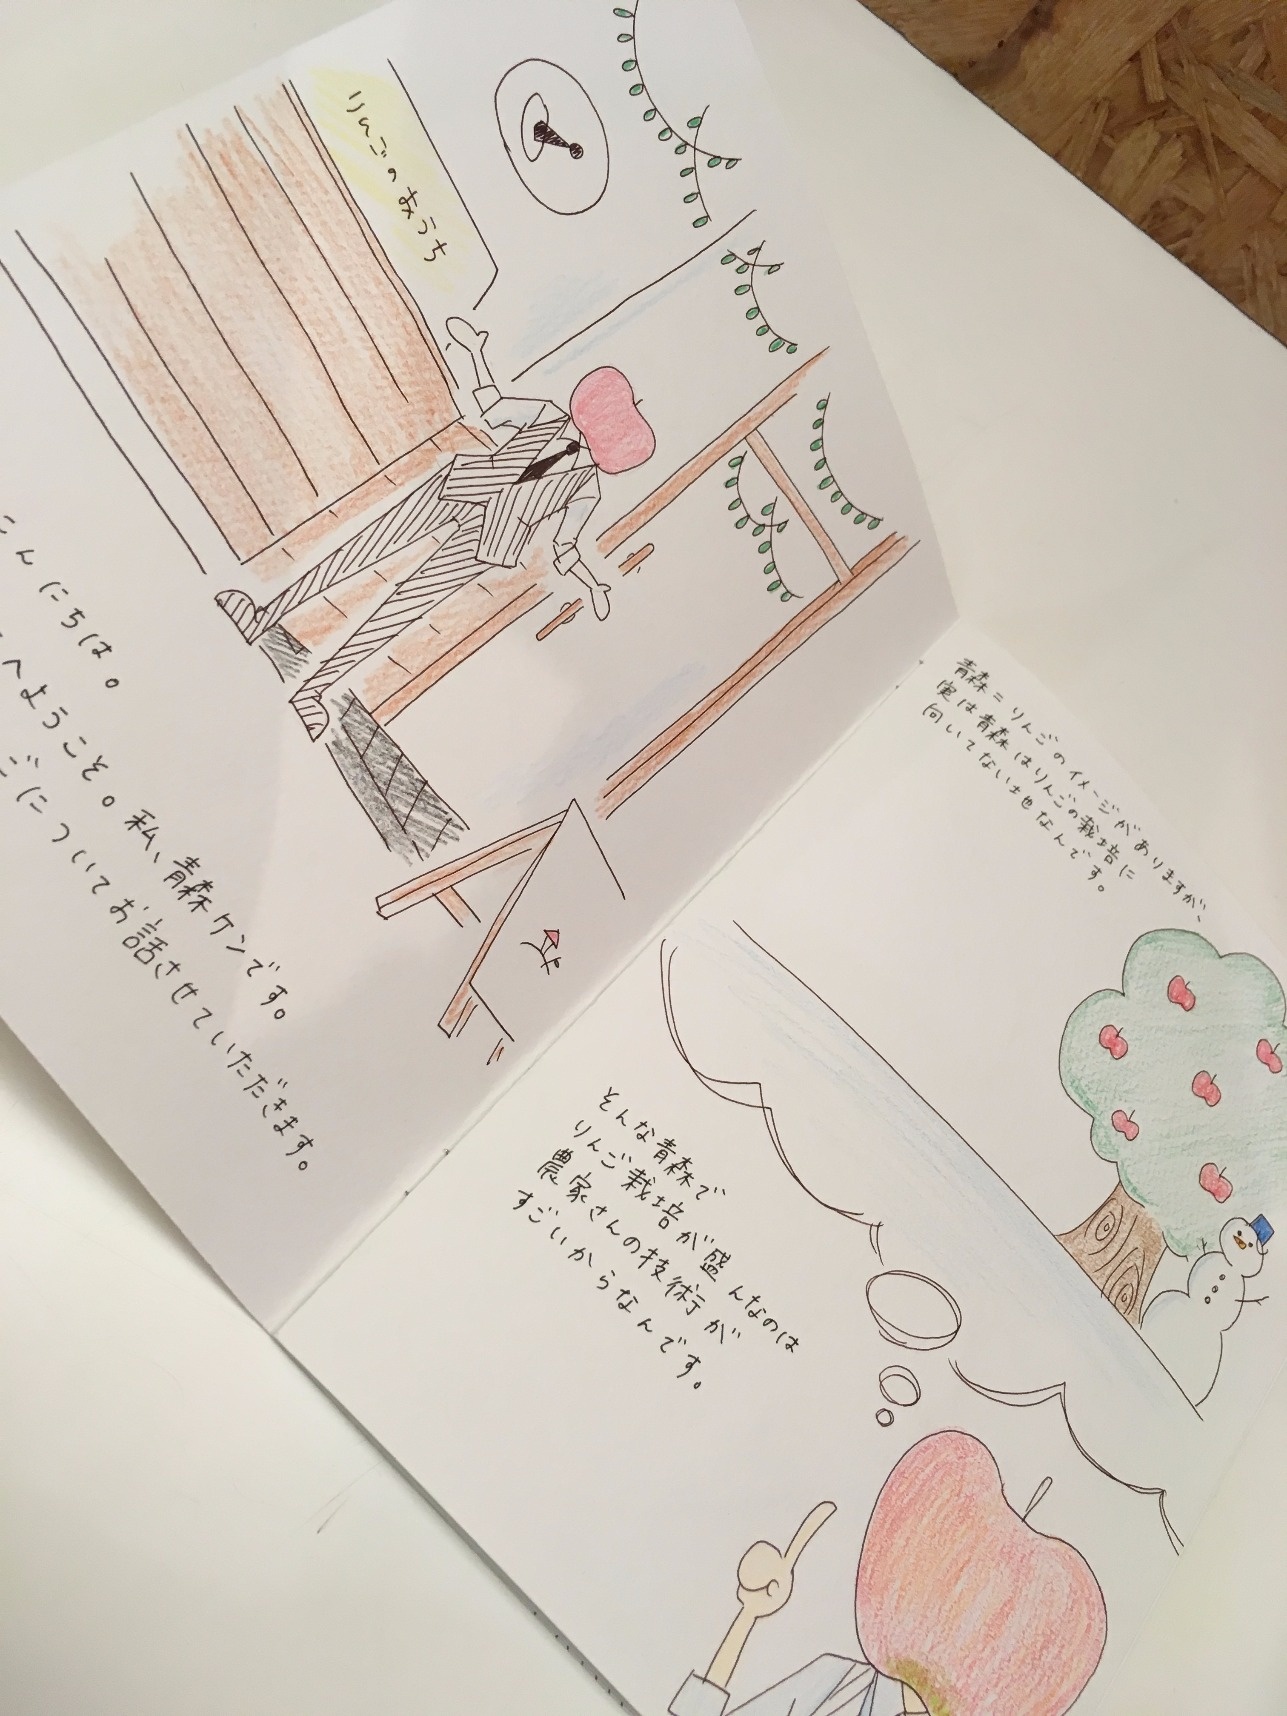 りんごのおうち
こんにちは。
へようこそ。私、青森ケンです。
ごについてお話させていただきます。
青森＝りんごのイメージがありますが、
実は青森はりんごの栽培に
向いてない土地なんです。
そんな青森で
りんご栽培が盛んなのは
農家さんの技術が
すごいからなんです。